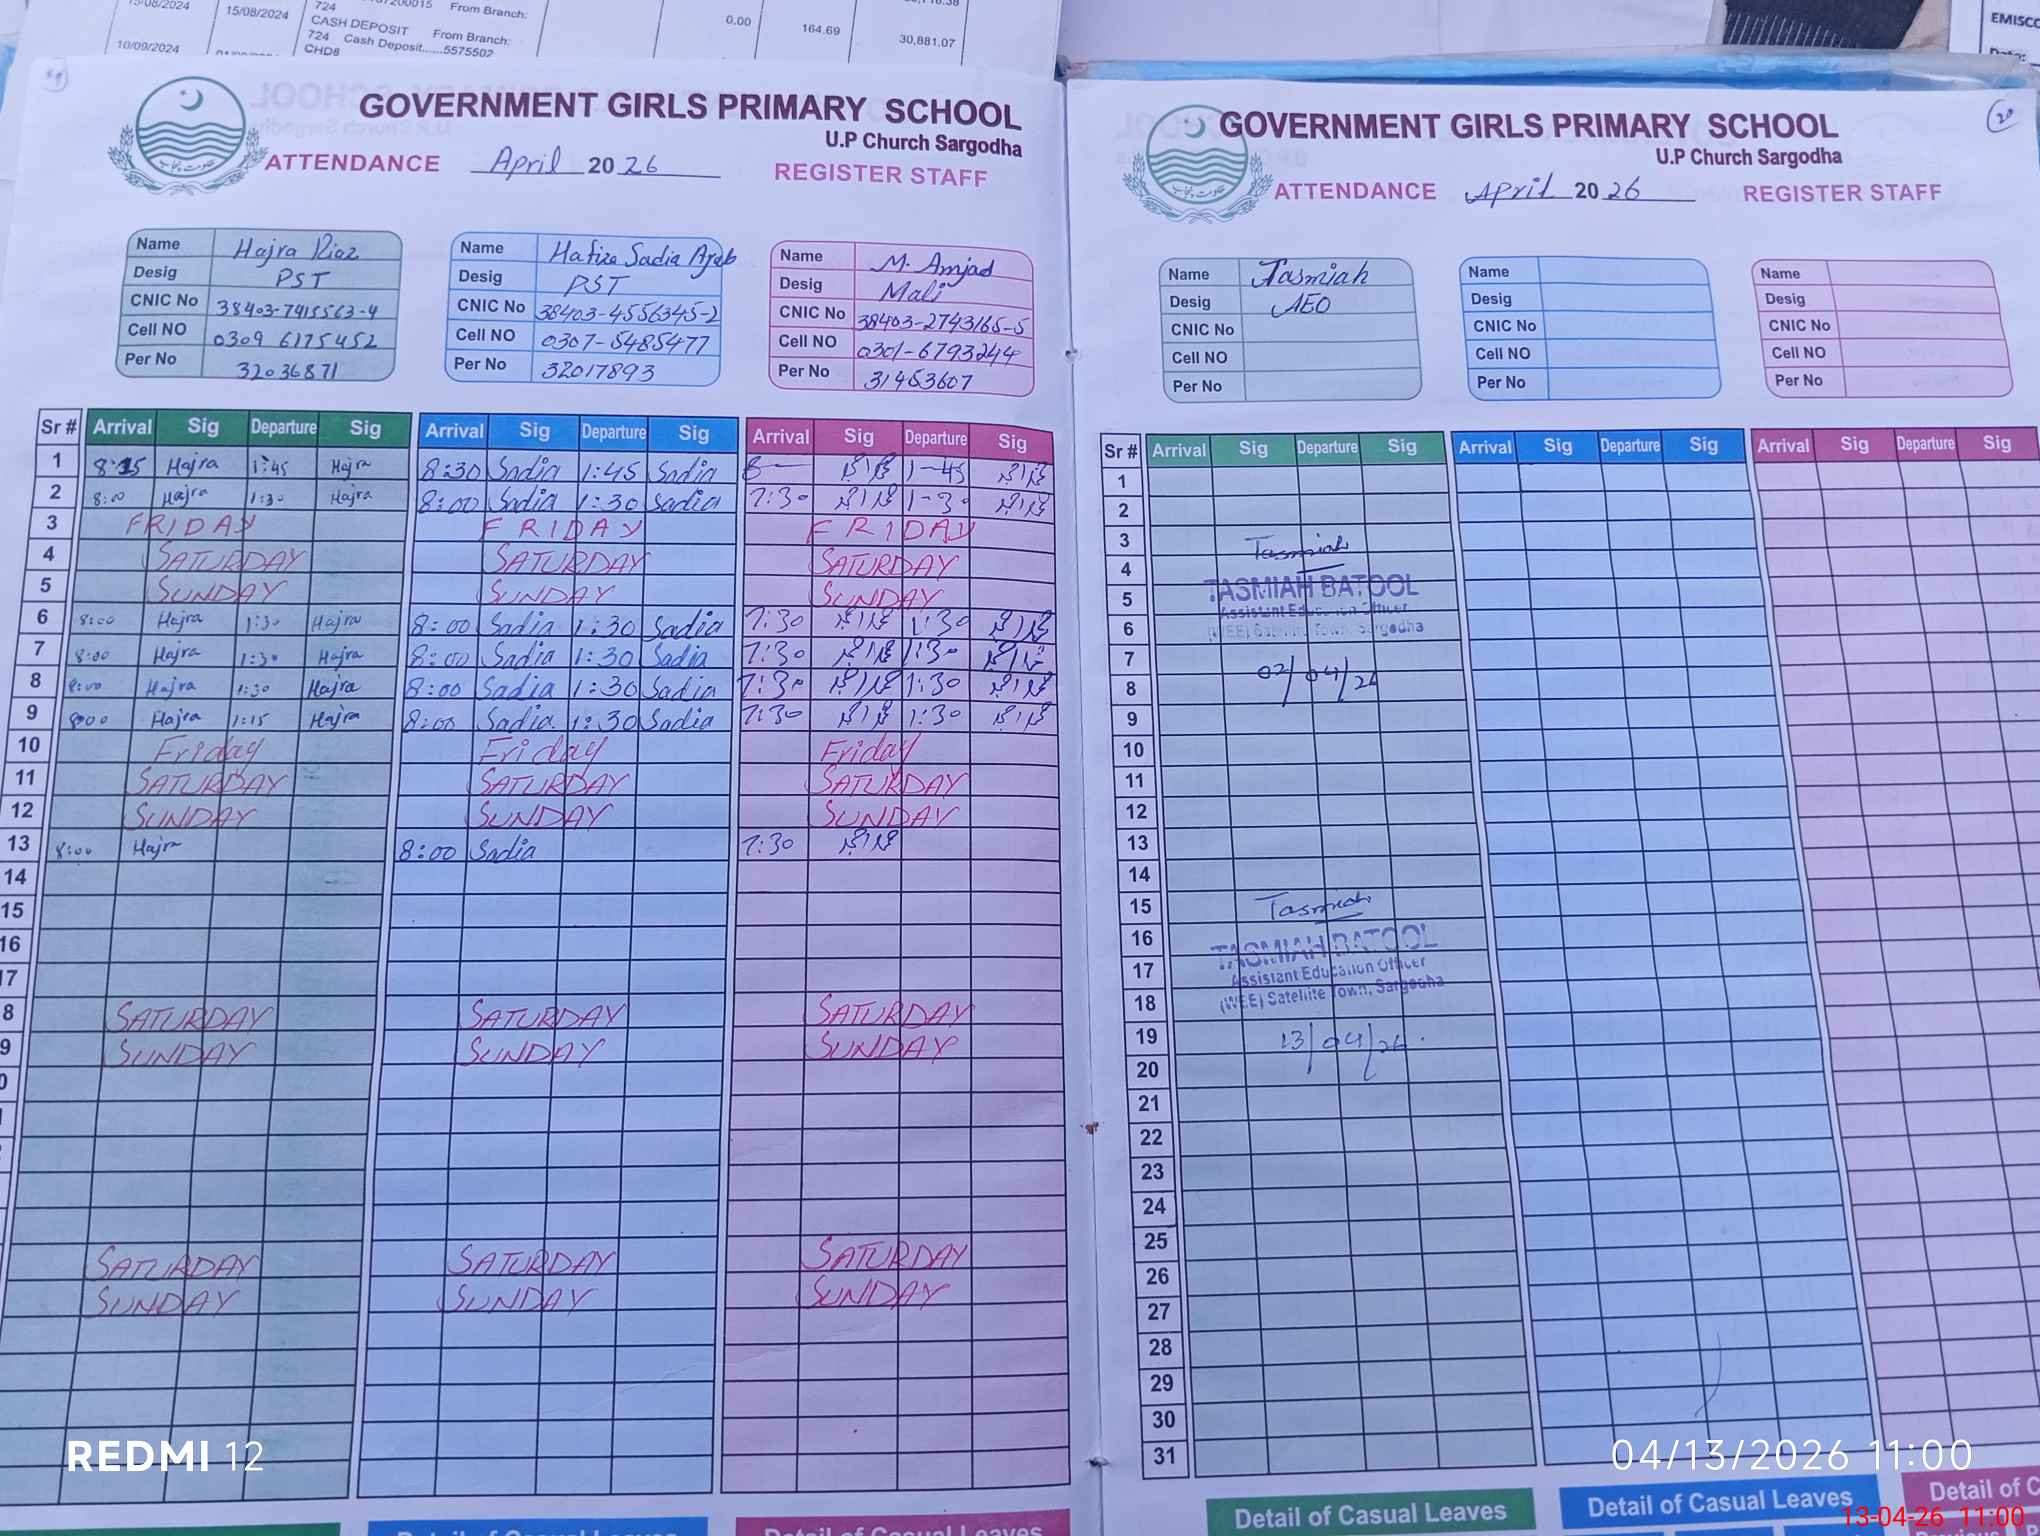 15/08/2024
724
From Branch:
CASH DEPOSIT From Branch:
724 Cash Deposit......5575502
CHD8
10/09/2024
0.00
164.69
30,881.07
EMISCO
GOVERNMENT GIRLS PRIMARY SCHOOL
U.P Church Sargodha
ATTENDANCE April 2026 REGISTER STAFF
Name Hajra Riaz
Desig PST
CNIC No 38403-7915563-4
Cell NO 0309 6175452
Per No 32036871
Name Hafiza Sadia Ayub
Desig PST
CNIC No 38403-4556345-2
Cell NO 0307-5485477
Per No 32017893
Name M. Amjad
Desig Mali
CNIC No 38403-2743165-5
Cell NO 0301-6793244
Per No 31453607
Sr # Arrival Sig Departure Sig Arrival Sig Departure Sig Arrival Sig Departure Sig
1 8:15 Hajra 1:45 Hajra 8:30 Sadia 1:45 Sadia 8— 1-45
2 8:00 Hajra 1:30 Hajra 8:00 Sadia 1:30 Sadia 7:30 1-30
3 FRIDAY FRIDAY FRIDAY
4 SATURDAY SATURDAY SATURDAY
5 SUNDAY SUNDAY SUNDAY
6 8:00 Hajra 1:30 Hajra 8:00 Sadia 1:30 Sadia 7:30 1:30
7 8:00 Hajra 1:30 Hajra 8:00 Sadia 1:30 Sadia 7:30 1:30
8 8:00 Hajra 1:30 Hajra 8:00 Sadia 1:30 Sadia 7:30 1:30
9 8:00 Hajra 1:15 Hajra 8:00 Sadia 1:30 Sadia 7:30 1:30
10 Friday Friday Friday
11 SATURDAY SATURDAY SATURDAY
12 SUNDAY SUNDAY SUNDAY
13 8:00 Hajra 8:00 Sadia 7:30
14
15
16
17
8 SATURDAY SATURDAY SATURDAY
9 SUNDAY SUNDAY SUNDAY
0
SATURDAY SATURDAY SATURDAY
SUNDAY SUNDAY SUNDAY
Detail of Casual Leaves
Detail of Casual Leaves
20
GOVERNMENT GIRLS PRIMARY SCHOOL
U.P Church Sargodha
ATTENDANCE April 2026 REGISTER STAFF
Name Tasmiah
Desig AEO
CNIC No
Cell NO
Per No
Name
Desig
CNIC No
Cell NO
Per No
Name
Desig
CNIC No
Cell NO
Per No
Sr # Arrival Sig Departure Sig Arrival Sig Departure Sig Arrival Sig Departure Sig
1
2
3 Tasmiah
4
5 TASMIAH BATOOL
Assistant Education Officer
6 (WEE) Satellite Town, Sargodha
7
8 02/04/26
9
10
11
12
13
14
15 Tasmiah
16 TASMIAH BATOOL
17 Assistant Education Officer
18 (WEE) Satellite Town, Sargodha
19 13/04/26
20
21
22
23
24
25
26
27
28
29
30
31
Detail of Casual Leaves
Detail of Casual Leaves
Detail of C
REDMI 12
04/13/2026 11:00
13-04-26 11:00